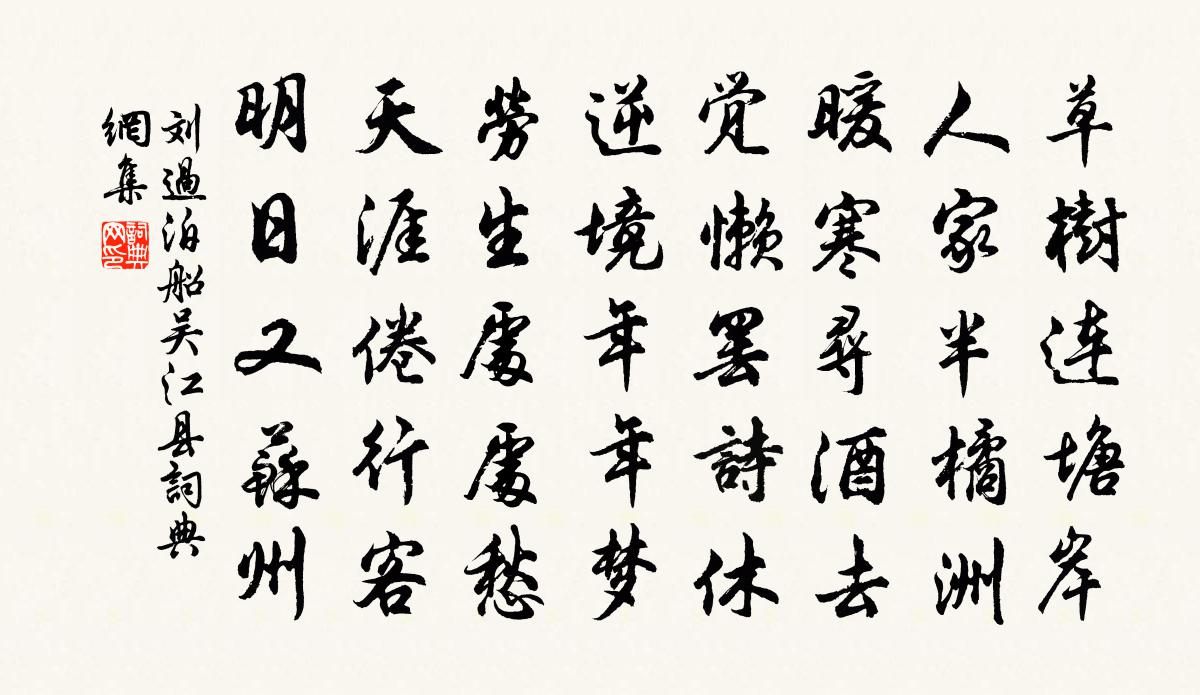 草樹连塘岸
人家半橘洲
暖寒尋酒去
觉懒罢詩休
逆境年年梦
勞生處處愁
天涯倦行客
明日又蘇州
刘過泊船吴江县詞典
網集
詞典
网印